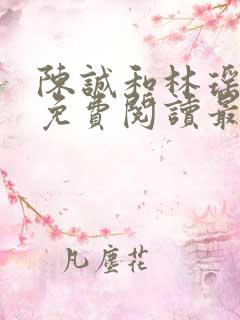 陳誠和林瑤
免費閱讀最
凡塵花